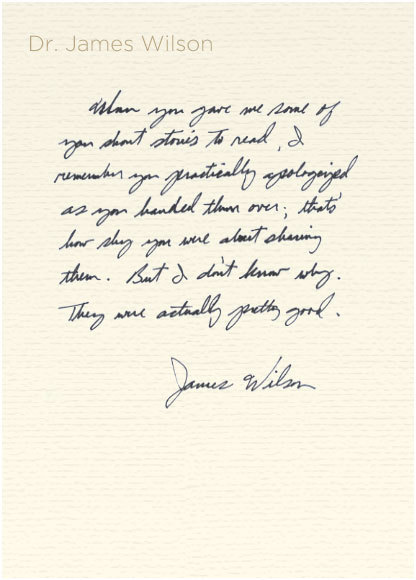 Dr. James Wilson
When you gave me some of
you short stories to read, I
remember you practically apologized
as you handed them over; that's
how shy you were about sharing
them. But I don't know why.
They were actually pretty good.
James Wilson